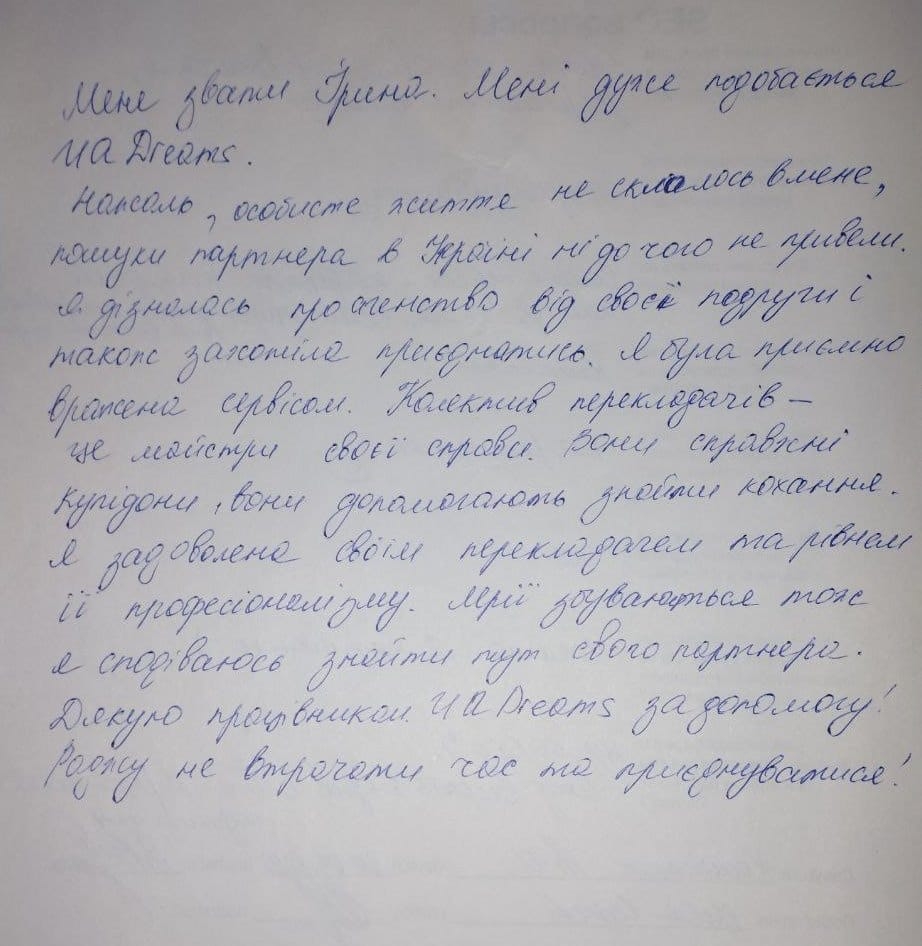 Мене звати Ірина. Мені дуже подобається
UA Dreams.
Нажаль, особисте життя не склалось в мене,
пошуки партнера в Україні ні до чого не привели.
Я дізналась про агенство від своєї подруги і
також захотіла приєднатись. Я була приємно
вражена сервісом. Колектив перекладачів –
це майстри своєї справи. Вони справжні
купідони, вони допомогають знайти кохання.
Я задоволена своїм перекладачем та рівнем
її професіоналізму. Мрії збуваються тож
я сподіваюсь знайти тут свого партнера.
Дякую працівникам UA Dreams за допомогу!
Раджу не втрачати час та приєднуватися!